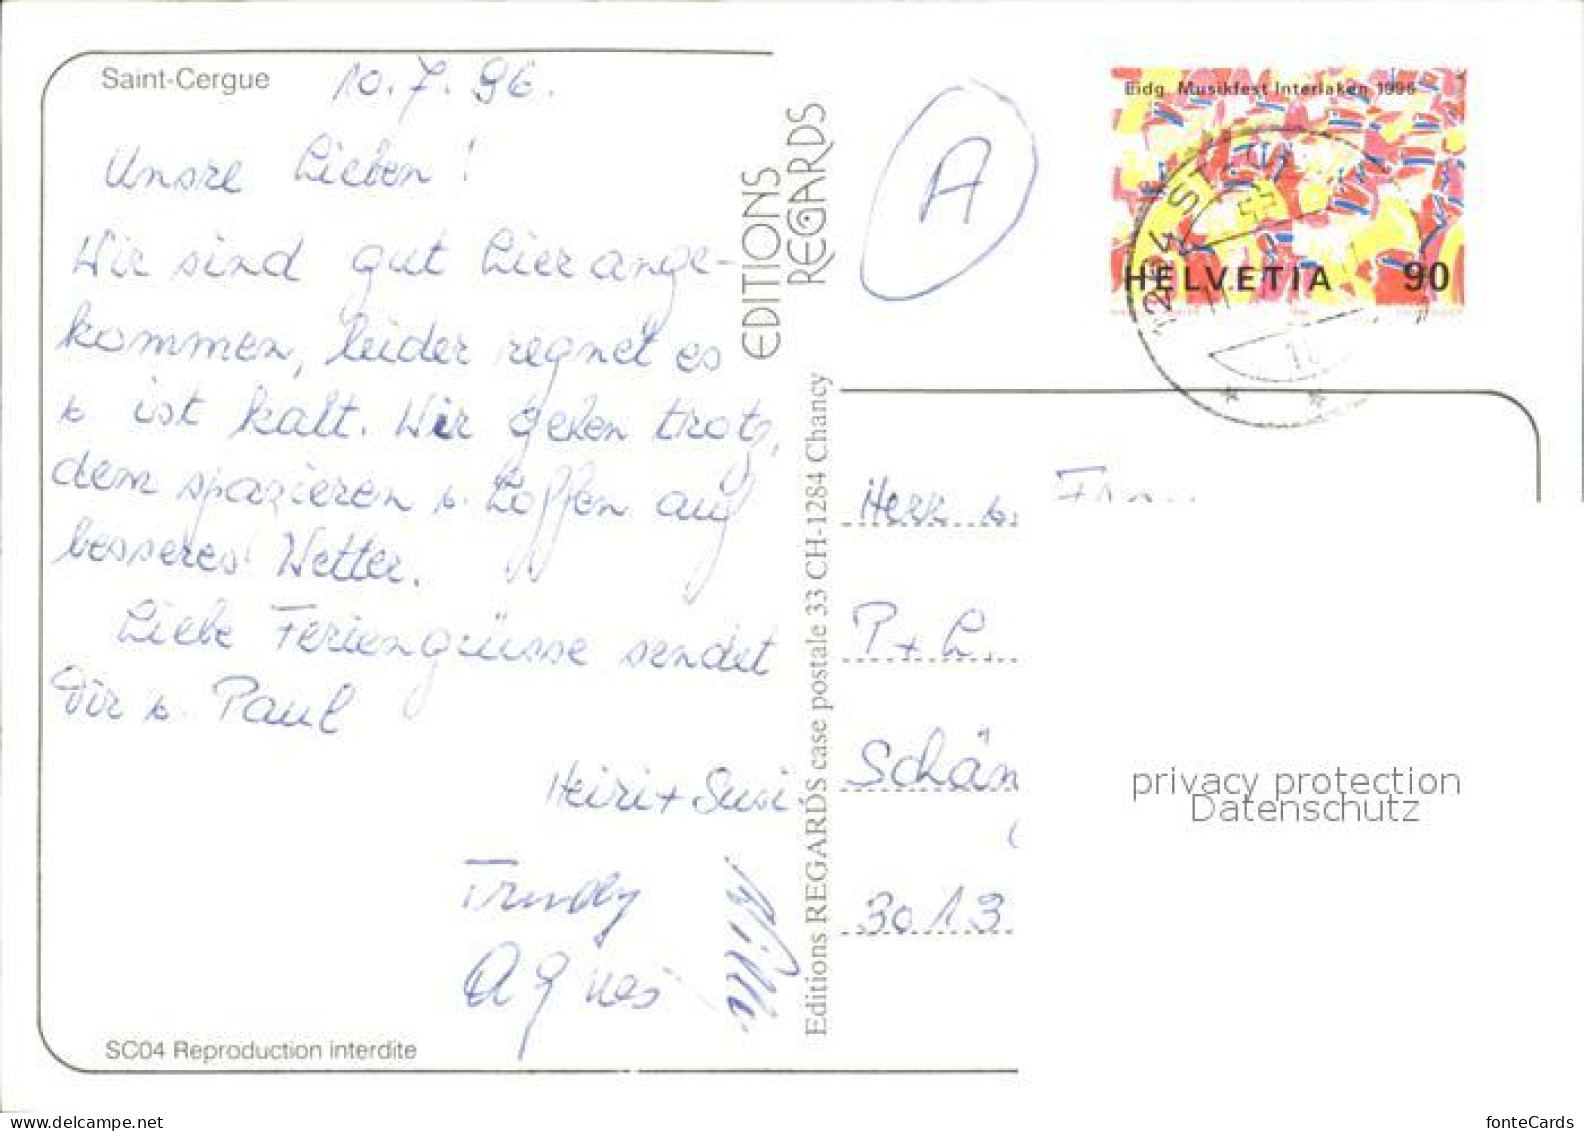 Saint-Cergue
10.7.96.
Unsre Lieben!
Wir sind gut hier ange-
kommen, leider regnet es
u. ist kalt. Wir gehen trotz,
dem spazieren u. hoffen auf
besseres Wetter.
Liebe Feriengrüsse sendet
Dir u. Paul
Heiri + Susi.
Trudy
Agnes
Willi
SC04 Reproduction interdite
EDITIONS
REGARDS
Editions REGARDS case postale 33 CH-1284 Chancy
A
Eidg. Musikfest Interlaken 1996
HELVETIA 90
1264 ST-C
Herr u. Frau
P + L.
Schän
3013
privacy protection
Datenschutz
fonteCards